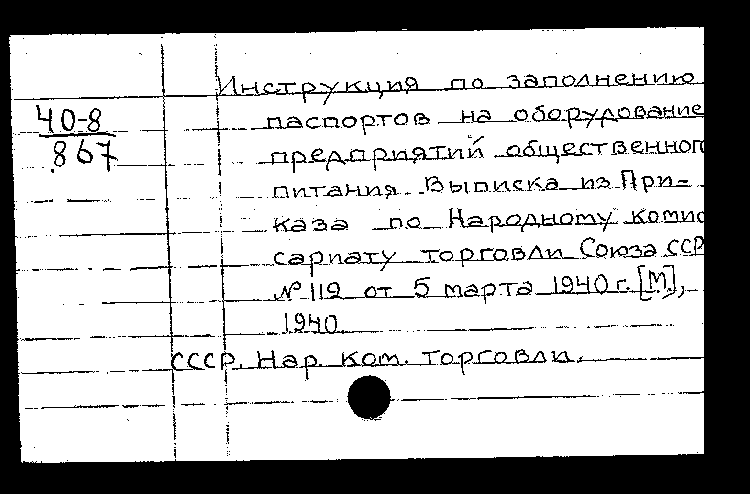 Инструкция по заполнению
40-8
867
паспортов на оборудование
предприятий общественног
питания. Выписка из При-
каза по Народному комис
сариату торговли Союза ССР
№ 119 от 5 марта 1940 г. [М],
1940.
СССР. Нар. ком. торговли.